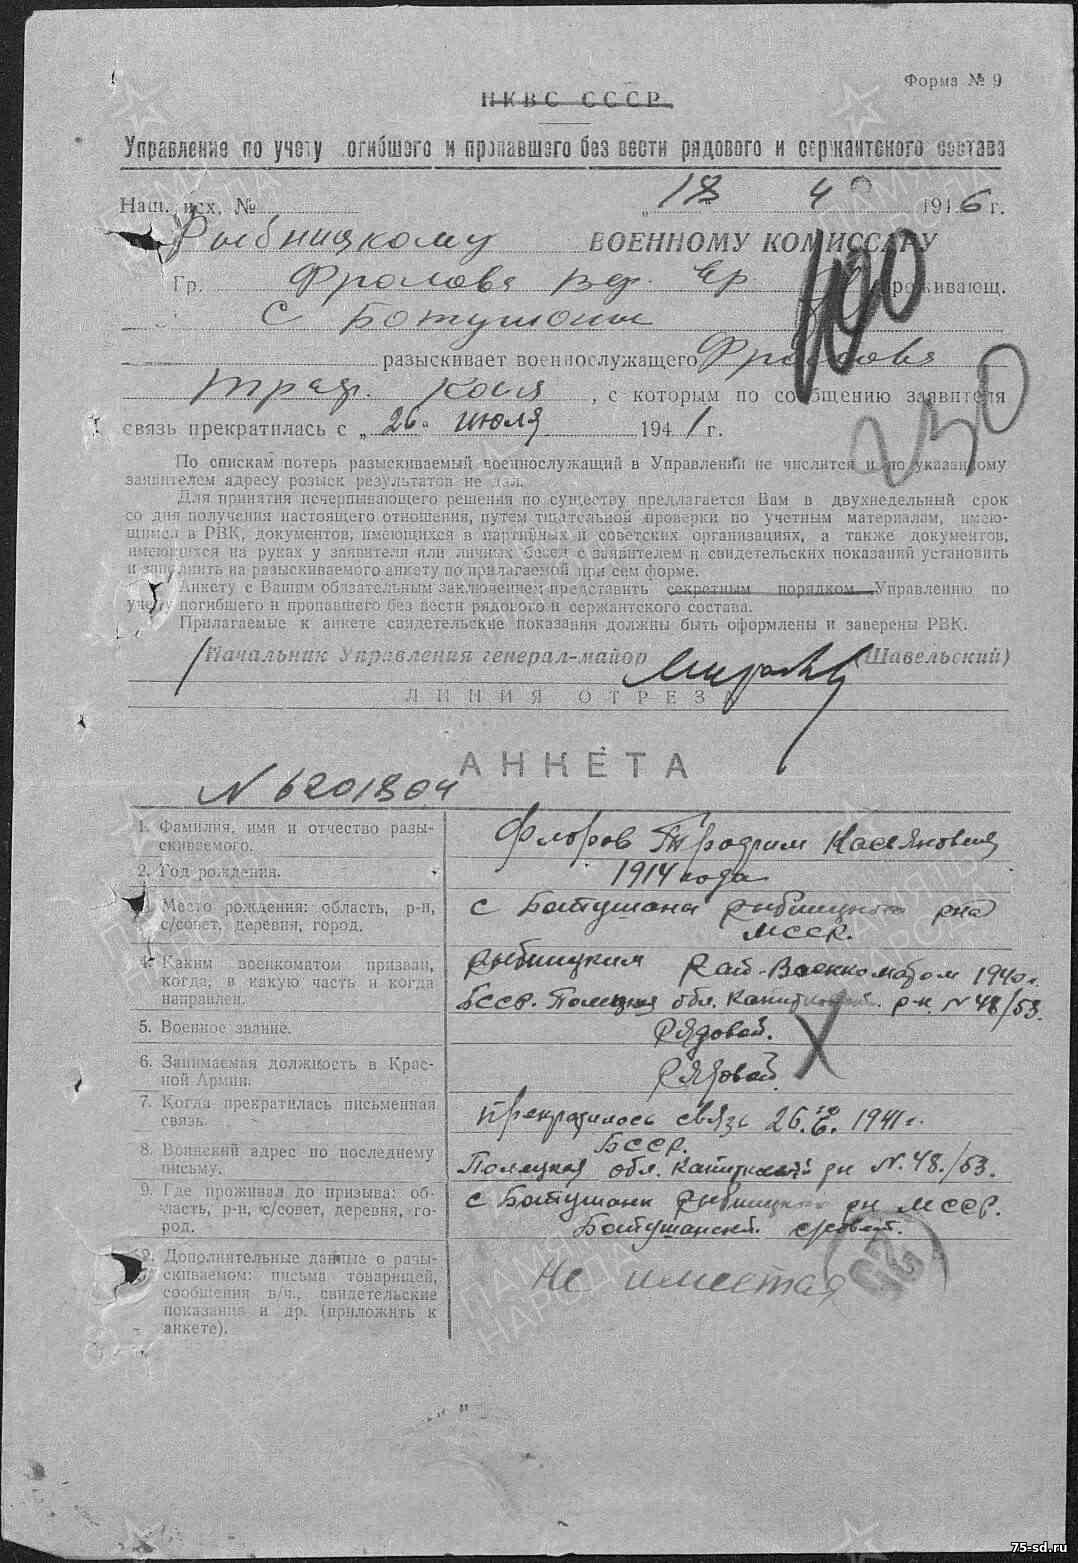 Форма № 9
НКВС СССР
Управление по учету погибшего и пропавшего без вести рядового и сержантского состава
Наш. исх. № „18 4 1946 г.
Рыбницкому ВОЕННОМУ КОМИССАРУ
100
Гр. Фролова проживающ.
с Ботушаны
разыскивает военнослужащего Фролова
, с которым по сообщению заявителя
связь прекратилась с „26" июля 1941 г.
По спискам потерь разыскиваемый военнослужащий в Управлении не числится и по указанному
заявителем адресу розыск результатов не дал.
Для принятия исчерпывающего решения по существу предлагается Вам в двухнедельный срок
со дня получения настоящего отношения, путем тщательной проверки по учетным материалам, имею-
щимся в РВК, документов, имеющихся в партийных и советских организациях, а также документов,
имеющихся на руках у заявителя или личных бесед с заявителем и свидетельских показаний установить
и заполнить на разыскиваемого анкету по прилагаемой при сем форме.
Анкету с Вашим обязательным заключением представить секретным порядком Управлению по
учету погибшего и пропавшего без вести рядового и сержантского состава.
Прилагаемые к анкете свидетельские показания должны быть оформлены и заверены РВК.
Начальник Управления генерал-майор (Шавельский)
ЛИНИЯ ОТРЕЗА
АНКЕТА
N 6201804
1. Фамилия, имя и отчество разы-
скиваемого.
Флоров Трофим Касьянович
2. Год рождения.
1914 года
3. Место рождения: область, р-н,
с/совет, деревня, город.
с Ботушаны Рыбницкого р-на
МССР.
4. Каким военкоматом призван,
когда, в какую часть и когда
направлен.
Рыбницким Рай-Военкоматом 1940 г.
БССР. Полецкая обл. р-н. N 48/53.
5. Военное звание.
Рядовой.
6. Занимаемая должность в Крас-
ной Армии.
Рядовой
7. Когда прекратилась письменная
связь.
прекратилось связь 26. 6. 1941 г.
8. Воинский адрес по последнему
письму.
БССР.
Полецкая обл. рн N. 48./53.
9. Где проживал до призыва: об-
ласть, р-н, с/совет, деревня, го-
род.
с Ботушани Рыбницкого рн МССР.
Ботушанский с/совет.
Дополнительные данные о разы-
скиваемом: письма товарищей,
сообщения в/ч., свидетельские
показания и др. (приложить к
анкете).
Не имеется
ПАМЯТЬ
НАРОДА
75-sd.ru